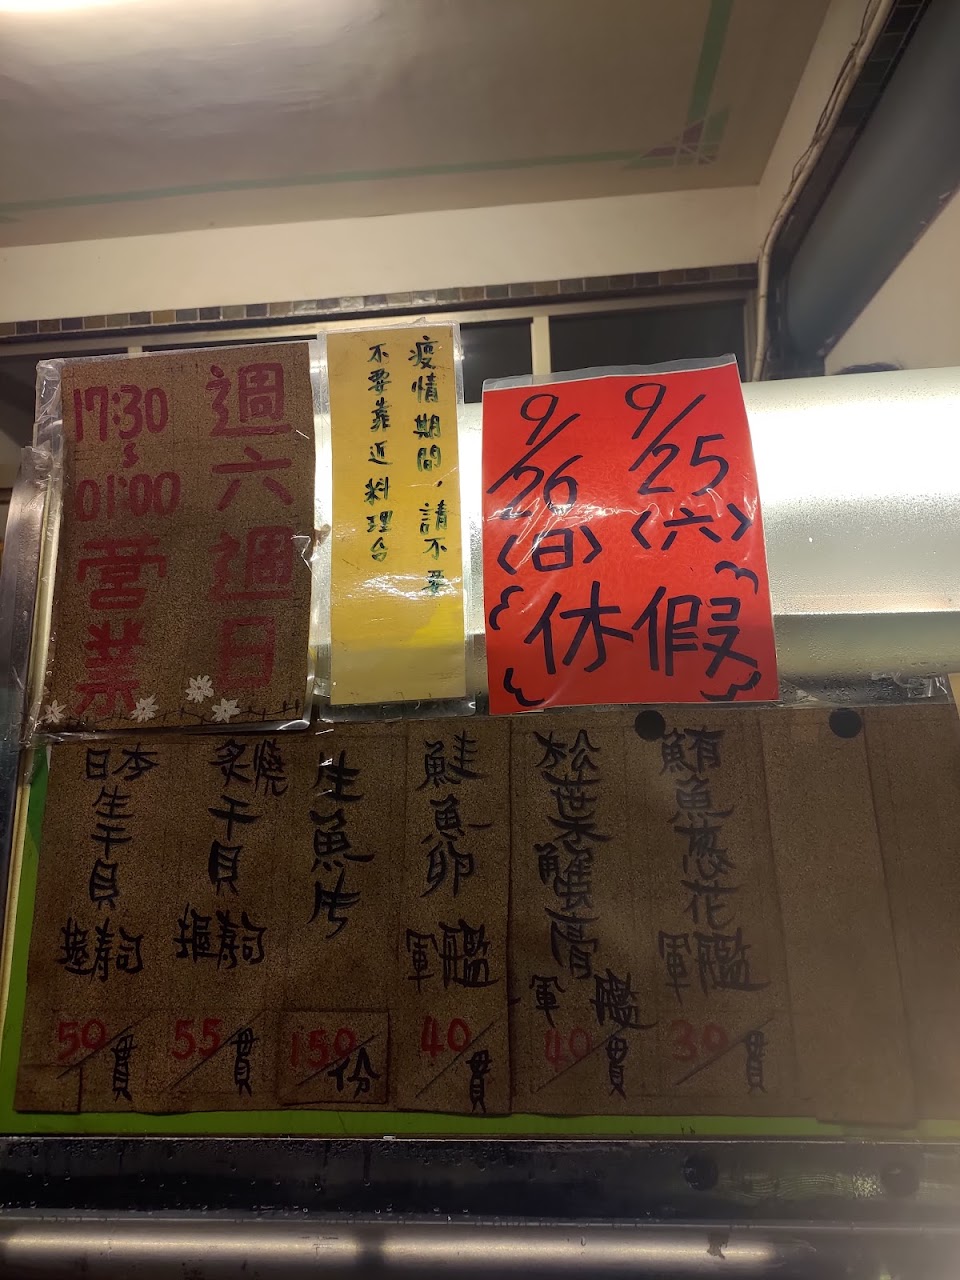 週六週日
17:30
~
01:00
營業
疫情期間,請不要
不要靠近料理台
9/25
〈六〉
9/26
〈日〉
休假
日本
生干貝
握壽司
50/貫
炙燒
干貝
握壽司
55/貫
生魚片
150/份
鮭魚卵
軍艦
40/貫
松葉蟹膏
軍艦
40/貫
鮪魚蔥花
軍艦
30/貫